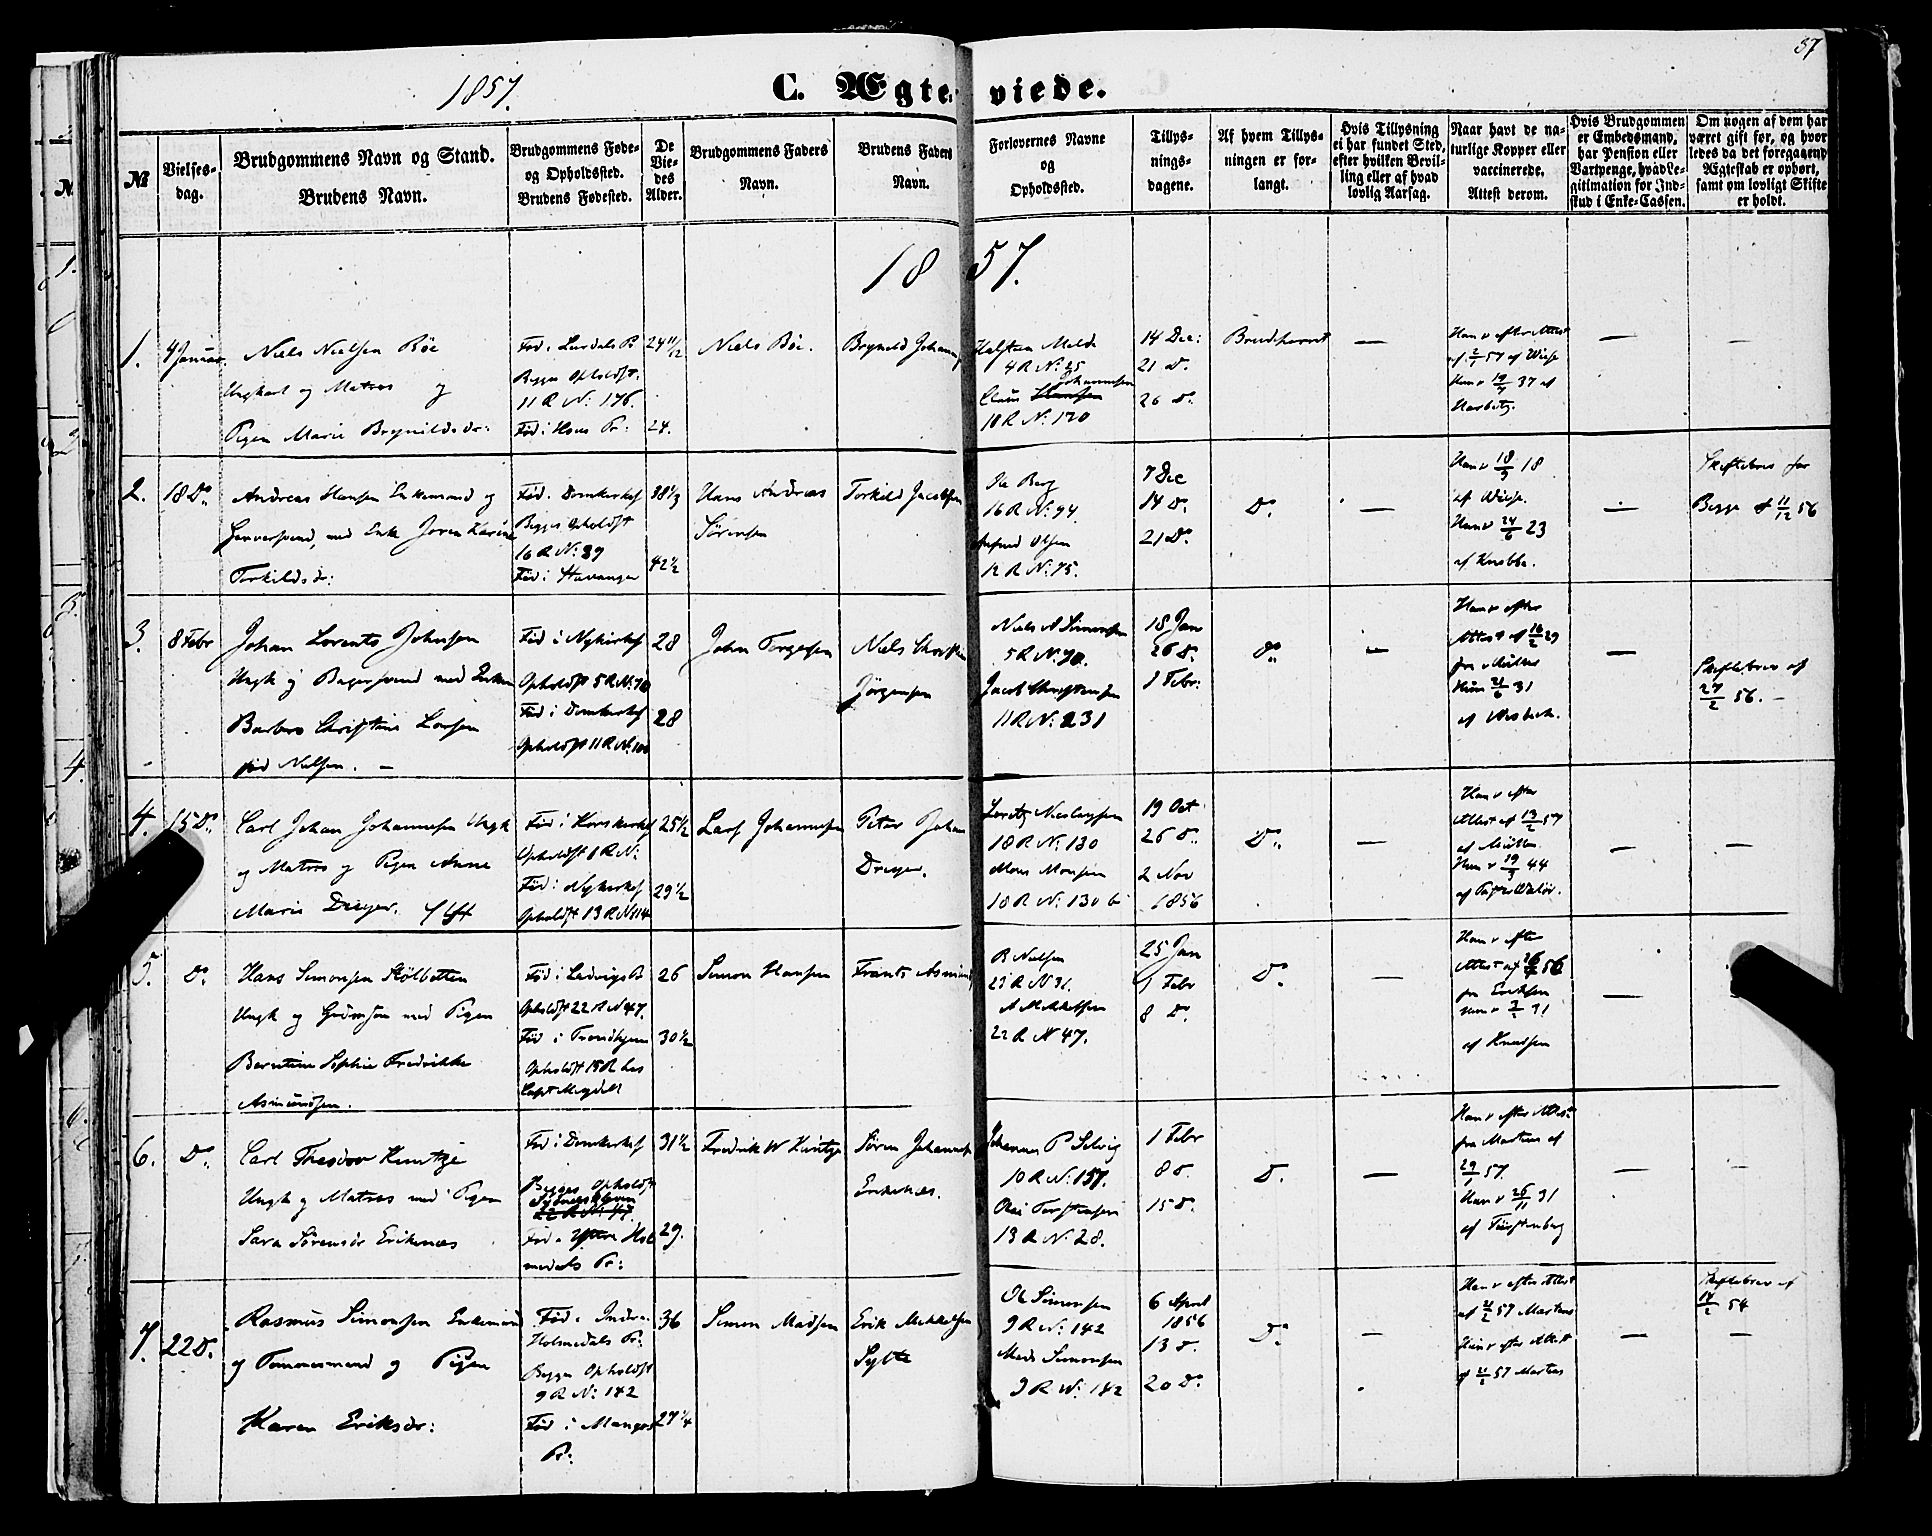 37
1857.
C. Ægteviede.
№
Vielses-
dag.
Brudgommens Navn og Stand.
Brudens Navn.
Brudgommens Føde-
og Opholdssted.
Brudens Fødested.
De
Vie-
des
Alder.
Brudgommens Faders
Navn.
Brudens Faders
Navn.
Forlovernes Navne
og
Opholdssted.
Tillys-
nings-
dagene.
Af hvem Tillys-
ningen er for-
langt.
Hvis Tillysning
ei har fundet Sted,
efter hvilken Bevil-
ling eller af hvad
lovlig Aarsag.
Naar havt de na-
turlige Kopper eller
vaccinerede.
Attest derom.
Hvis Brudgommen
er Embedsmand,
har Pension eller
Vartpenge, hvad Le-
gitimation for Ind-
skud i Enke-Cassen.
Om nogen af dem har
været gift før, og hvor
ledes da det foregaaende
Ægteskab er ophørt,
samt om lovligt Skifte
er holdt.
1857.
1.
4 Januar
Niels Nielsen Bøe
Ungkarl og Matros og
Pigen Marie Brynildsdr:
Fød i Leirdals Pr
Begges Opholdst.
11 R N: 176.
Fød i Hous Pr:
24 11/12
24.
Niels Bøe.
Brynild Johannes
4 R N: 25
Johannesen
Claus Hansen
10 R N: 120
14 Dec:
21 Do
26 Do
Brudparret
—
Han v efter Attest
—
—
2.
18 Do
Andreas Hansen Enkemand og
med Enke Joren Karine
Torkildsdr:
Fød i Domkirkes
Begges Opholdst
16 R N: 39
Fød i Stavanger
38 1/3
42 1/2
Hans Andreas
Sørensen
Torkild Jacobsen
Ole Berg
16 R N: 94.
Olsen
12 R N: 75.
7 Dec
14 Do
21 Do
Do
—
Han v 18/9 18
af Wiese.
Hun v 24/6 23
—
Skiftebrev for
Begge af 11/12 56
3.
8 Febr
Johan Lorents Johnsen
Ungk og Bagersvend med Enken
Barbro Christine Larsen
fød Nielsen. —
Fød i Nykirkes
Opholdst 5 R N: 70
Fød i Domkirkes
Opholdst 11 R N: 100
28
28
John Torgersen
Niels
Jørgensen
Niels A Simonsen
5 R N: 70.
Jacob Christensen
11 R N: 231
18 Jan
26 Do
1 Febr:
Do
—
Han v efter
Attest af 16/2 29
Hun 21/6 31
—
Skiftebrev af
27/2 56. —
4.
15 Do
Carl Johan Johannesen Ungk
og Matros og Pigen Anne
Marie Dreyer.
Fød i Korskirkes
Opholdst 1 R N:
Fød i Nykirkes
Opholdst 13 R N: 114
25 1/2
29 1/2
Lars Johannesen
Peter Johan
Dreyer.
18 R N: 130
Mons Monsen
10 R N: 130 b
19 Oct
26 Do
2 Nov
1856
Do
—
Han v efter
Attest af 13/2 57
Hun v 19/3 44
—
—
5.
Do
Hans Simonsen Stølbotten
Ungk og med Pigen
Berntine Sophie Fredrikke
Asmundsen.
Fød i Ladvigs Pr
Opholdst 22 R N 47.
Fød i Trondhjem
Opholdst 15 R hos
26
30 1/2
Simon Hansen
Frants Asmund
R Nielsen
A Mikkelsen
22 R N 47.
25 Jan
1 Febr
8 Do
Do
—
Han v efter
Attest af 56
fra Eriksen
af Knudsen
—
—
6.
Do
Carl Theodor Kuntze
Ungk og Matros med Pigen
Sara Sørensdr Eriknes
Fød i Domkirkes
Begges Opholdst
22 R N: 47
Fød i Yttre Hol-
medals Pr:
31 1/2
29.
Fredrik W Kuntze
Søren Johannes
Eriknes.
Johannes P Selvig
10 R N: 157.
Ole Torstensen
13 R N: 28.
1 Febr
8 Do
15 Do
Do
—
Han v efter Attest
fra Martens af
29/1 57.
Hun v 26/11 31
af Fürstenberg
—
—
7.
22 Do
Rasmus Simonsen Enkemand
og Tømmermand og Pigen
Karen Eriksdr:
Fød i Indre
Holmedals Pr:
Begges Opholdst
9 R N: 142
Fød i Mangers
Pr:
36
27 1/4
Simon Madsen
Erik Mikkelsen
Sylte
Ole Simonsen
9 R N: 142
Mads Simonsen
9 R N: 142
6 April
1856
13 Do
20 Do
Do
—
Han v efter Attest
af 21/2 57 Martens
Hun v efter Attest
af 21/2 57 Martens
—
Skiftebrev af
14/2 54
—